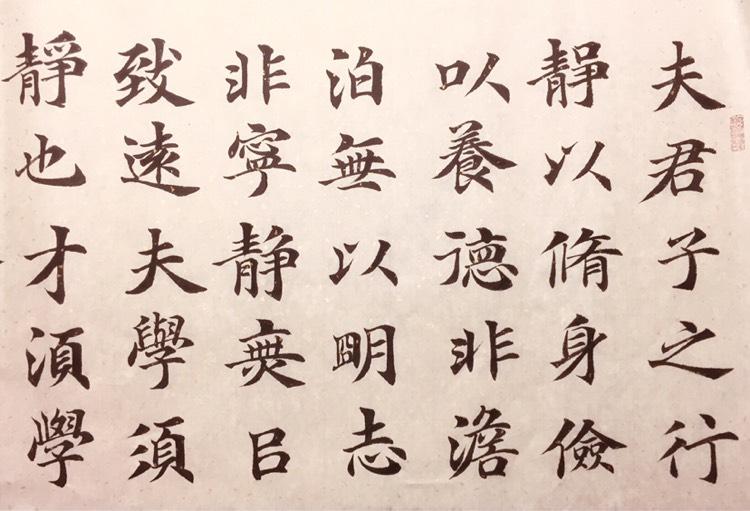 夫君子之行
靜以脩身儉
以養德非澹
泊無以明志
非寧靜無㠯
致遠夫學須
靜也才須學